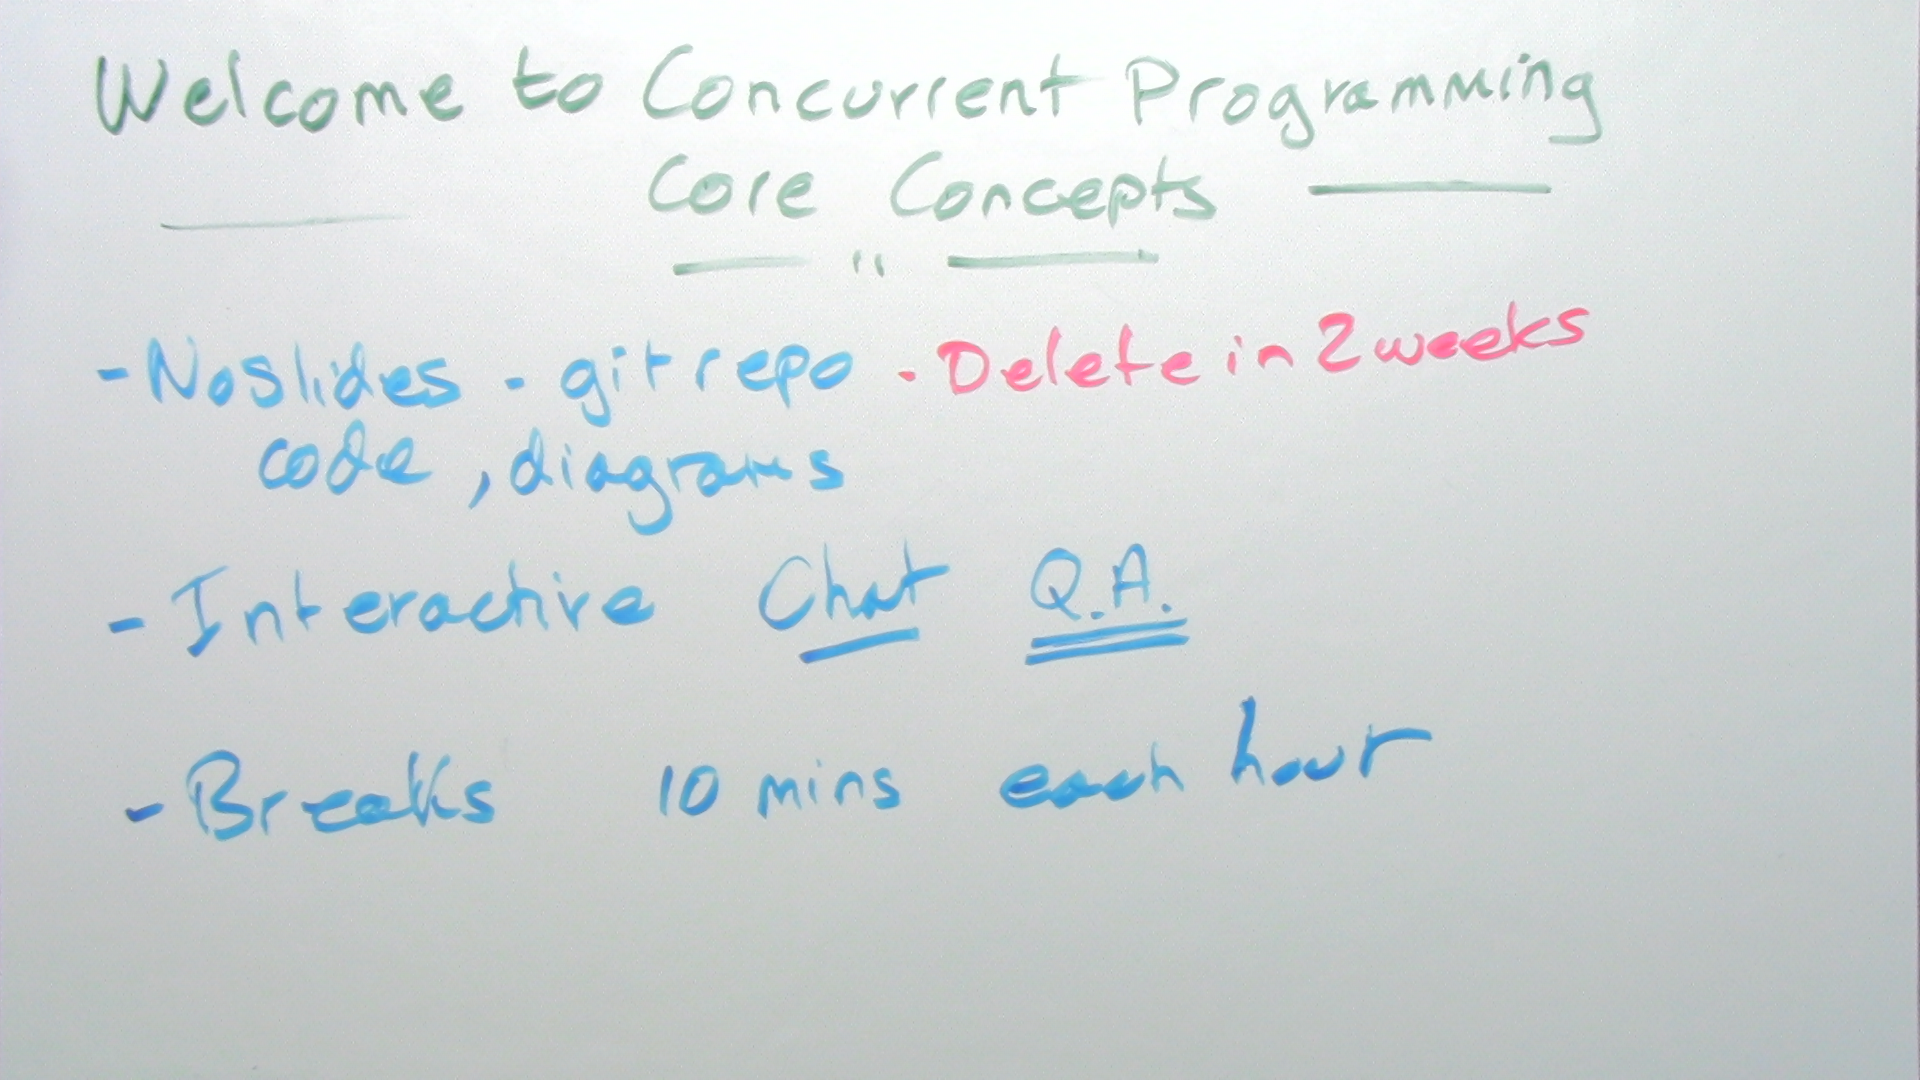 Welcome to Concurrent Programming
Core Concepts
- No Slides - git repo - Delete in 2 weeks
code, diagrams
- Interactive Chat Q.A.
- Breaks 10 mins each hour